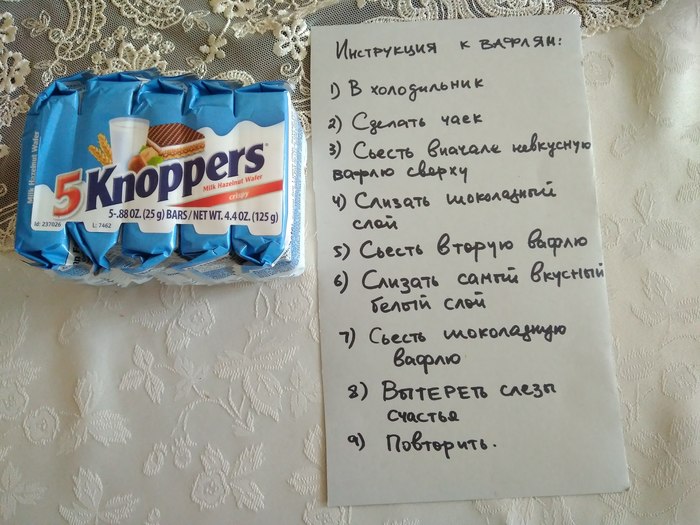 Milk Hazelnut Wafer
5 Knoppers
Milk Hazelnut Wafer
crispy
5-.88 OZ. (25 g) BARS / NET WT. 4.4 OZ. (125 g)
Id: 237026 L: 7462
Инструкция к вафлям:
1) В холодильник
2) Сделать чаек
3) Сьесть вначале невкусную
вафлю сверху
4) Слизать шоколадный
слой
5) Сьесть вторую вафлю
6) Слизать самый вкусный
белый слой
7) Сьесть шоколадную
вафлю
8) Вытереть слезы
счастья
9) Повторить.